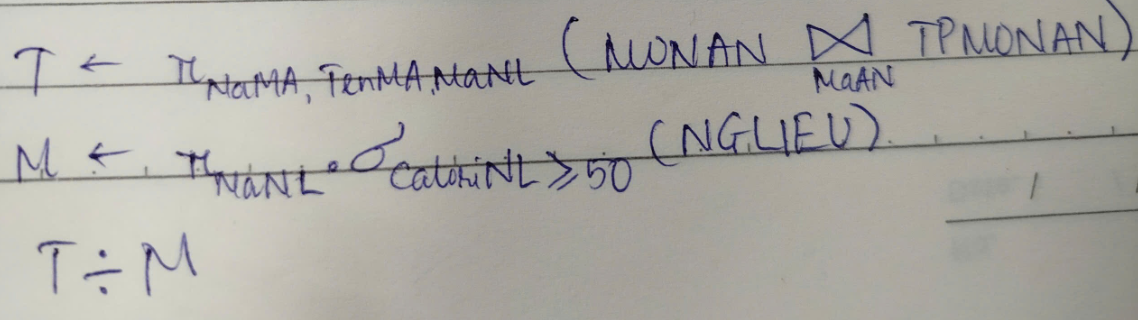 T ← π NaMA, TenMA, MaNL (MONAN ⋈ MaAN TPMONAN)
M ← π MaNL . σ CaloriNL ≥ 50 (NGLIEU)
T ÷ M